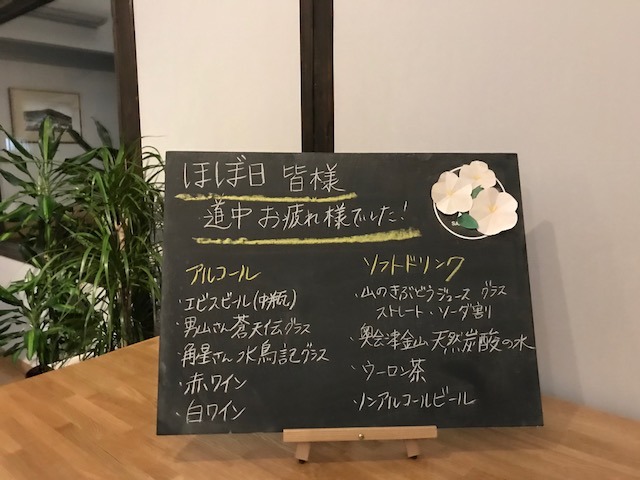 ほぼ日 皆様
道中 お疲れ様でした!
アルコール
・エビスビール(中瓶)
・男山さん 蒼天伝 グラス
・角星さん 水鳥記 グラス
・赤ワイン
・白ワイン
ソフトドリンク
・山のきぶどうジュース グラス
ストレート・ソーダ割り
・奥会津金山 天然炭酸の水
・ウーロン茶
・ノンアルコールビール